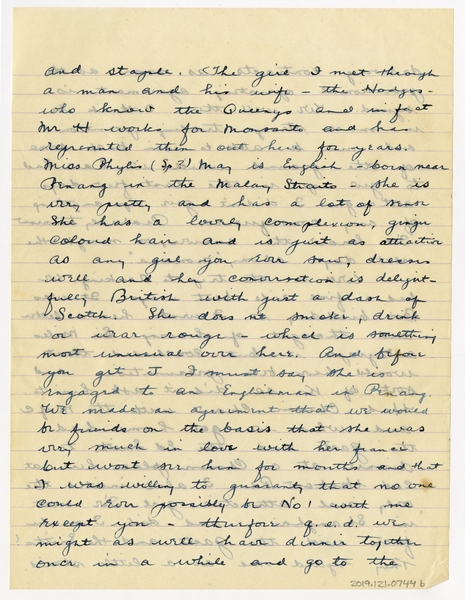 and staple. The girl I met through
a man and his wife – the Hodges –
who know the Queenys and in fact
Mr H works for Monsanto and has
represented them out here for years.
Miss Phylis (Sp?) May is English – born near
Penang in the Malay Straits – she is
very pretty and has a lot of sense
She has a lovely complexion, ginger
colored hair and is just as attractive
as any girl you ever saw, dresses
well and her conversation is delight-
fully British with just a dash of
Scotch. She does not smoke, drink
or wear rouge – which is something
most unusual over here. And before
you get J I must say she is
engaged to an Englishman in Penang.
We made an agreement that we would
be friends on the basis that she was
very much in love with her francè
but wont see him for months and that
I was willing to guaranty that no one
could ever possibly be No 1 with me
except you – therefore q.e.d. we
might as well have dinner together
once in a while and go to the
2019.121.0744 b